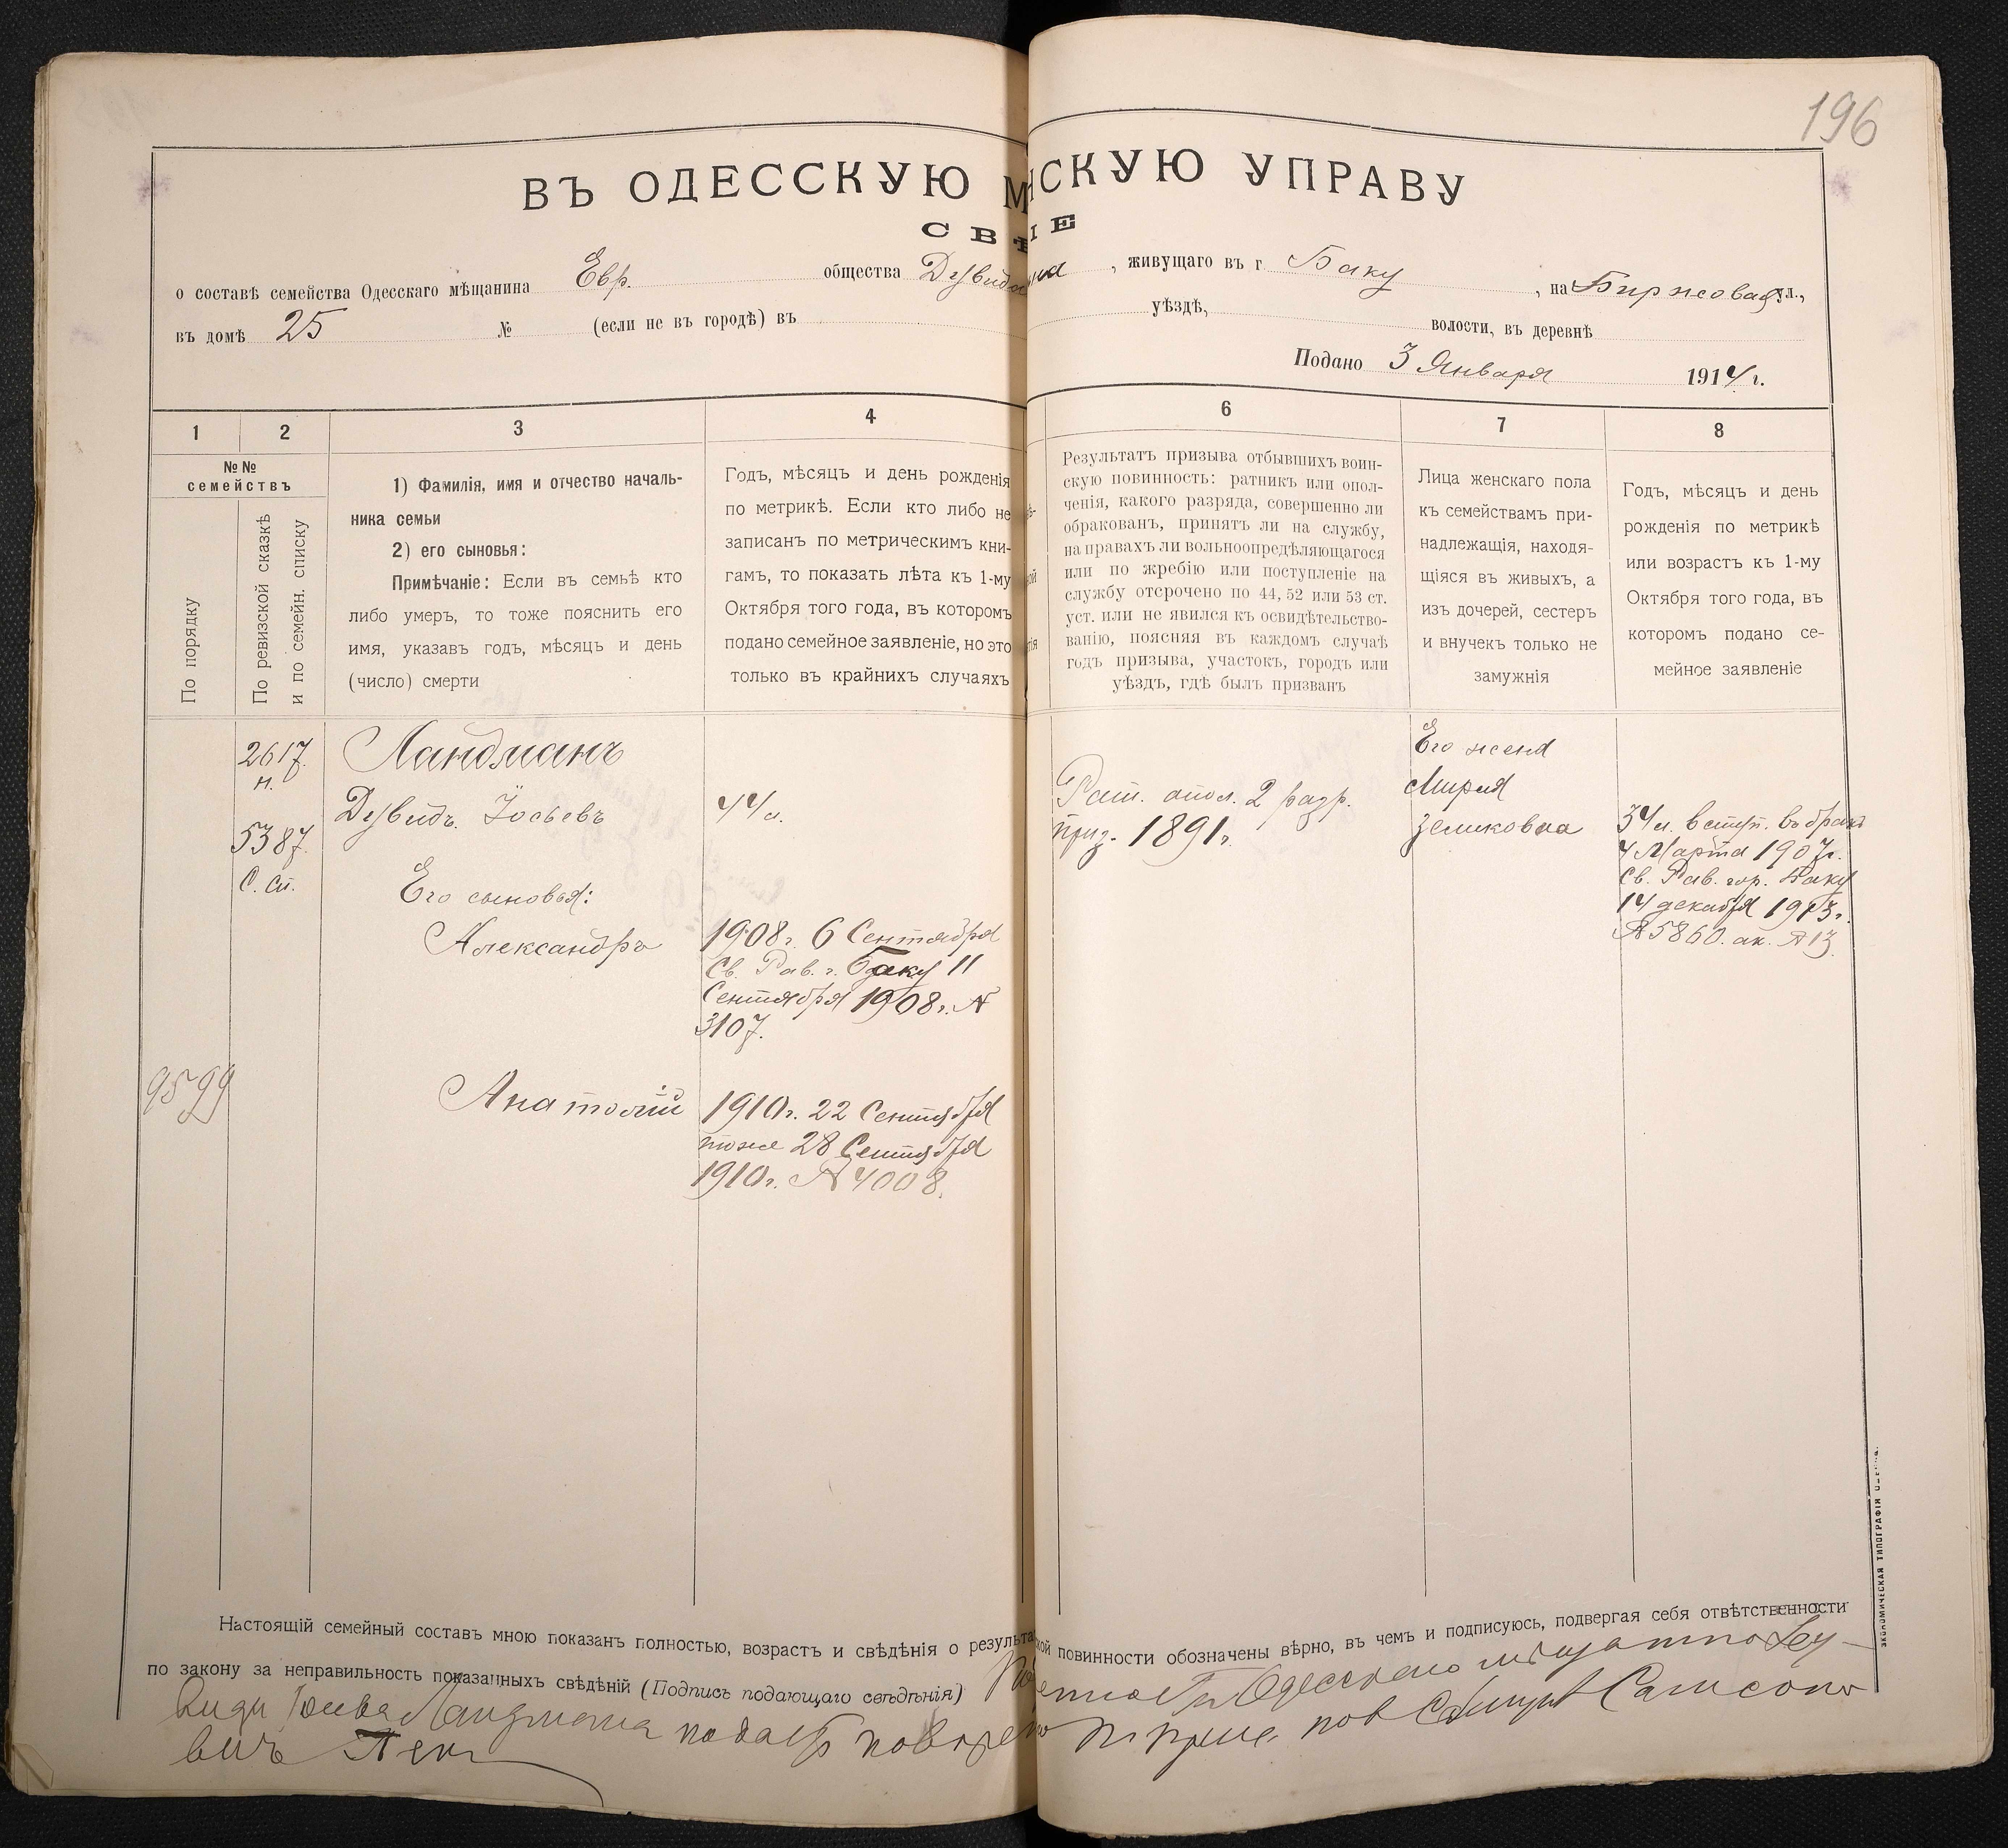 196
ВЪ ОДЕССКУЮ М СКУЮ УПРАВУ
СВѢ IE
о составѣ семейства Одесскаго мѣщанина Евр. общества , живущаго въ г Баку , на Биржевая ул.,
въ домѣ 25 № (если не въ городѣ) въ уѣздѣ, волости, въ деревнѣ
Подано 3 Января 1914 г.
1 2 3 4 6 7 8
№№ семействъ
По порядку
По ревизской сказкѣ
и по семейн. списку
1) Фамилія, имя и отчество началь-
ника семьи
2) его сыновья:
Примѣчаніе: Если въ семьѣ кто
либо умеръ, то тоже пояснить его
имя, указавъ годъ, мѣсяцъ и день
(число) смерти
Годъ, мѣсяцъ и день рожденія
по метрикѣ. Если кто либо не
записанъ по метрическимъ кни-
гамъ, то показать лѣта къ 1-му
Октября того года, въ которомъ
подано семейное заявленіе, но это
только въ крайнихъ случаяхъ
Результатъ призыва отбывшихъ воин-
скую повинность: ратникъ или опол-
ченія, какого разряда, совершенно ли
обракованъ, принятъ ли на службу,
на правахъ ли вольноопредѣляющагося
или по жребію или поступленіе на
службу отсрочено по 44, 52 или 53 ст.
уст. или не явился къ освидѣтельство-
ванію, поясняя въ каждомъ случаѣ
годъ призыва, участокъ, городъ или
уѣздъ, гдѣ былъ призванъ
Лица женскаго пола
къ семействамъ при-
надлежащія, находя-
щіяся въ живыхъ, а
изъ дочерей, сестеръ
и внучекъ только не
замужнія
Годъ, мѣсяцъ и день
рожденія по метрикѣ
или возрастъ къ 1-му
Октября того года, въ
которомъ подано се-
мейное заявленіе
2617.
н.
5387.
С. сп.
9599
Ландманъ
Дувидъ Іосьевъ
Его сыновья:
Александръ
Анатолій
44 л.
1908 г. 6 Сентября
Св. Рав. г. Баку 11
Сентября 1908 г. №
3107.
1910 г. 22 Сентября
тоже 28 Сентября
1910 г. № 4008.
Рат. опол. 2 разр.
приз. 1891 г.
Его жена
Мирья
Зеликовна
34 л. вступ. въ бракъ
4 Марта 1907 г.
Св. Рав. гор. Баку
14 декабря 1913 г.
№ 5860. ак. № 13.
Настоящій семейный составъ мною показанъ полностью, возрастъ и свѣдѣнія о результа кой повинности обозначены вѣрно, въ чемъ и подписуюсь, подвергая себя отвѣтственности
по закону за неправильность показанныхъ свѣдѣній (Подпись подающаго свѣдѣнія) Одесскаго
Ландмана
ЭКОНОМИЧЕСКАЯ ТИПОГРАФІЯ